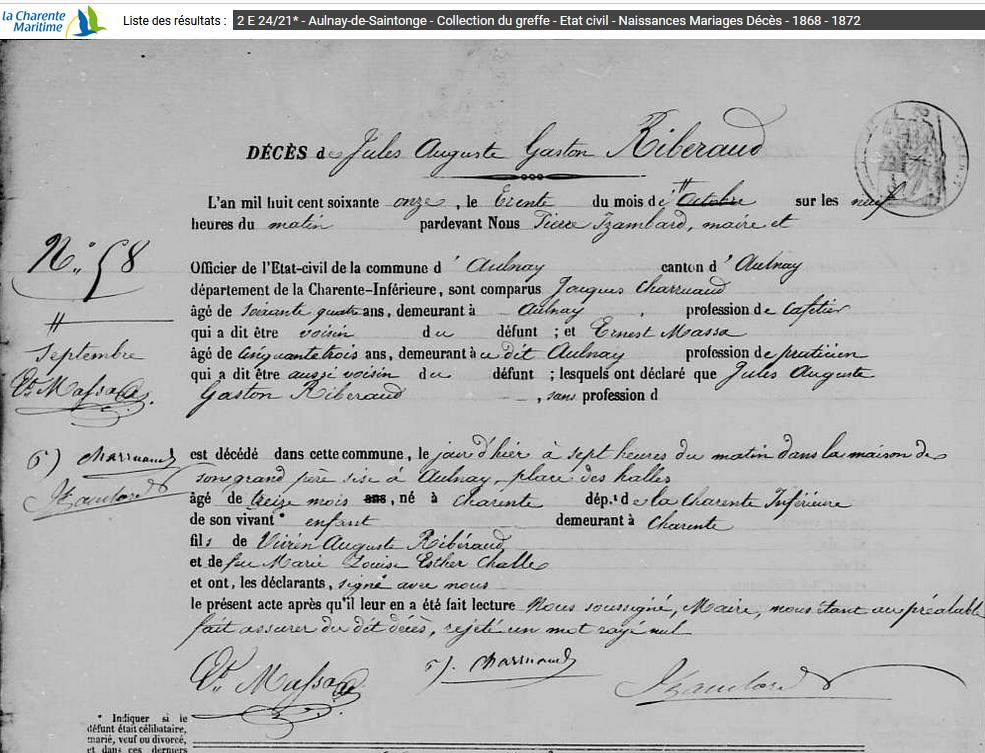 la Charente
Maritime
Liste des résultats : 2 E 24/21* - Aulnay-de-Saintonge - Collection du greffe - Etat civil - Naissances Mariages Décès - 1868 - 1872
DÉCÈS de Jules Auguste Gaston Riberaud
L'an mil huit cent soixante onze, le Trente du mois de # Octobre sur les neuf
heures du matin pardevant Nous Pierre Izambard, maire et
N.° 58
Officier de l'Etat-civil de la commune d'Aulnay canton d'Aulnay
département de la Charente-Inférieure, sont comparus Jacques Charruaud
âgé de soixante quatre ans, demeurant à Aulnay, profession de cafetier
#
qui a dit être voisin du défunt ; et Ernest Massa
Septembre
âgé de Cinquante trois ans, demeurant à u dit Aulnay profession de praticien
qui a dit être aussi voisin du défunt ; lesquels ont déclaré que Jules Auguste
Et. Massa
Gaston Riberaud, sans profession d
J Charruaud
est décédé dans cette commune, le jour d'hier à sept heures du matin dans la maison de
son grand père sise à Aulnay, place des halles
Izambard
âgé de treize mois ans, né à Charente dép.t de la Charente Inférieure
de son vivant * enfant demeurant à Charente
fils de Vivien Auguste Ribéraud
et de feu Marie Louise Esther Challe
et ont, les déclarants, signé avec nous
le présent acte après qu'il leur en a été fait lecture Nous soussigné, Maire, nous étant au préalable
fait assurer du dit décès, rejeté un mot rayé nul
Et. Massa J. Charruaud Izambard
* Indiquer si le
défunt était célibataire,
marié, veuf ou divorcé,
et dans ces derniers